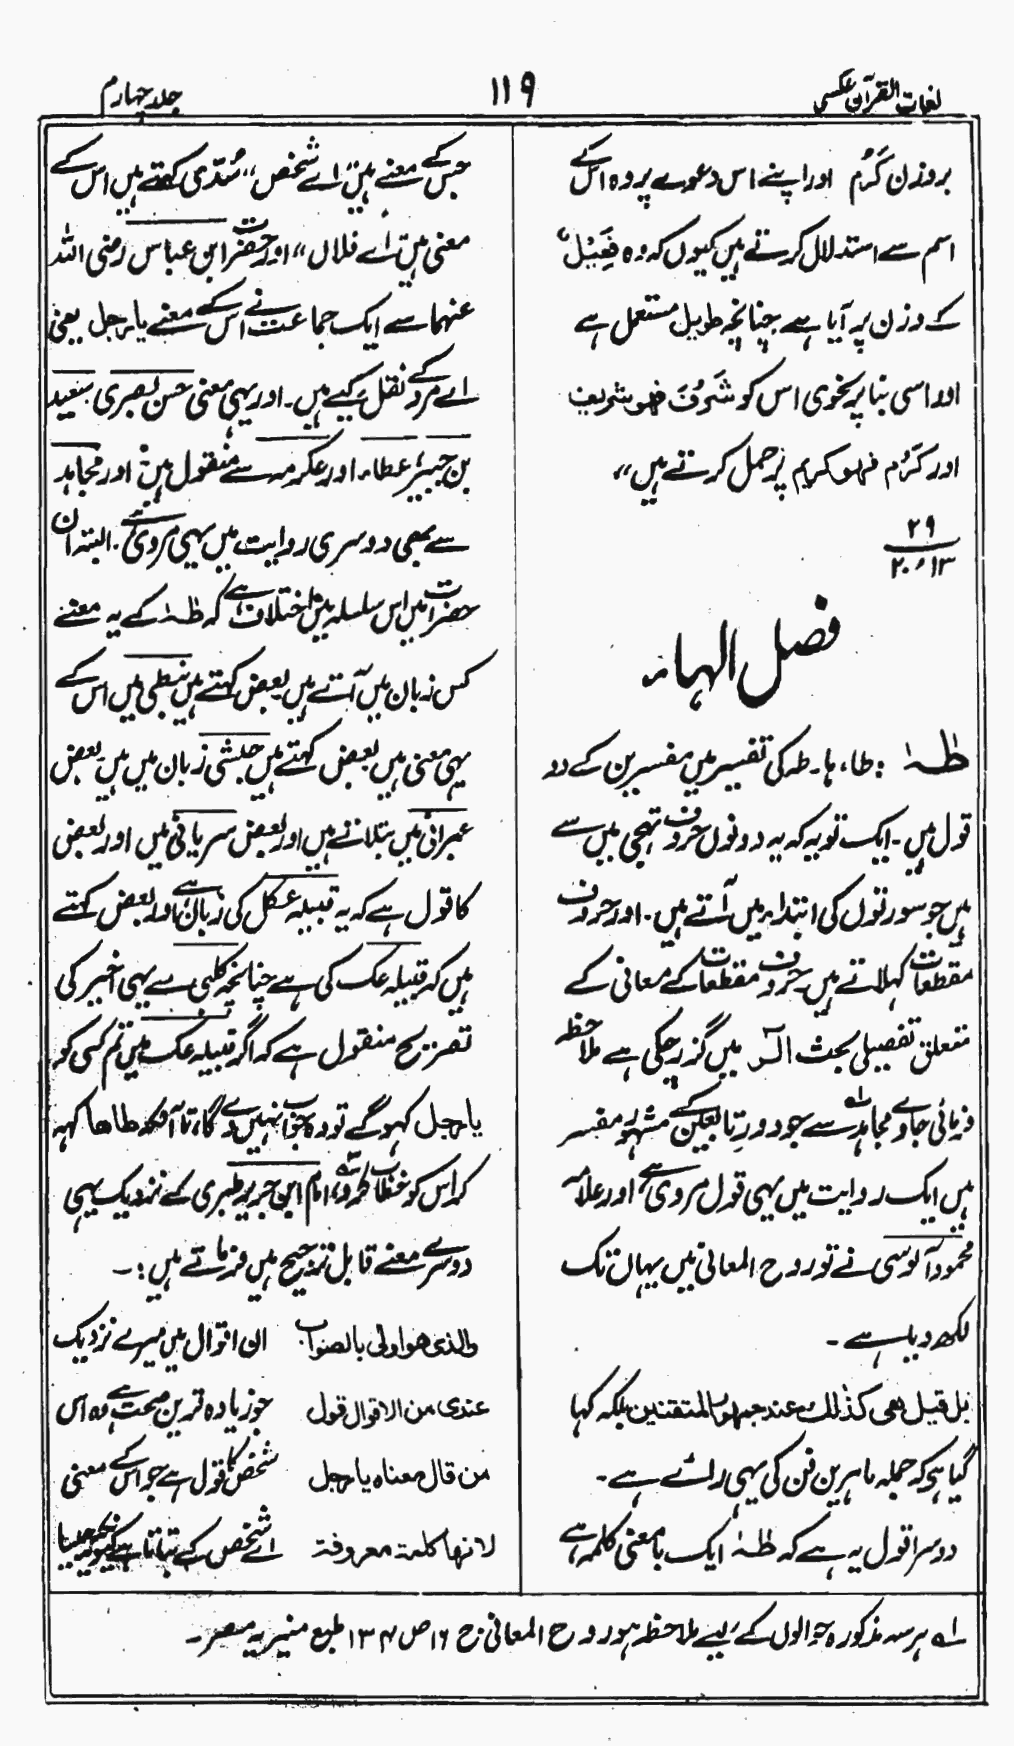 لغات القرآن عکسی
۱۱۹
جلد چہارم
بروزن کَرُم اور اپنے اس دعوے پر وہ اس کے
اسم سے استدلال کرتے ہیں کیوں کہ وہ فَعِیْلٌ
کے وزن پر آیا ہے چنانچہ طویل مستعمل ہے
اور اسی بنا پر نحوی اس کو شَرُفَ فہو شریف
اور کَرُم فہو کریم پر حمل کرتے ہیں"
۲۹
۱۳، ۲۰
فصل الہاء
طٰہٰ : طا، ہا۔ طہ کی تفسیر میں مفسرین کے دو
قول ہیں۔ ایک تو یہ کہ یہ دونوں حروف تہجی میں سے
ہیں جو سورتوں کی ابتداء میں آتے ہیں۔ اور حروف
مقطعات کہلاتے ہیں حروف مقطعات کے معانی کے
متعلق تفصیلی بحث الٓر میں گزر چکی ہے ملاحظہ
فرمائی جاوے مجاہد سے جو دورِ تابعین کے مشہور مفسر
ہیں ایک روایت میں یہی قول مروی ہے، اور علامہ
محمود آلوسی نے تو روح المعانی میں یہاں تک
لکھ دیا ہے۔
بل قیل ھی کذلک عند جمہور المتقنین بلکہ کہا
گیا ہی کہ جملہ ماہرین فن کی یہی رائے ہے۔
دوسرا قول یہ ہے کہ طٰہٰ ایک بامعنی کلمہ ہے
جس کے معنے ہیں "اے شخص" سُدّی کہتے ہیں اس کے
معنی ہیں "اے فلاں" اور حضرت ابن عباس رضی اللہ
عنہما سے ایک جماعت نے اس کے معنے یا رجل یعنی
اے مرد کے نقل کیے ہیں۔ اور یہی معنی حسن بصری سعید
بن جبیر، عطاء اور عکرمہ سے منقول ہیں اور مجاہد
سے بھی دوسری روایت میں یہی مروی ہے۔ البتہ ان
حضرات میں اس سلسلہ میں اختلاف ہے کہ طٰہٰ کے یہ معنے
کس زبان میں آتے ہیں بعض کہتے ہیں نبطی میں اس کے
یہی معنی ہیں بعض کہتے ہیں حبشی زبان میں ہیں بعض
عبرانی میں بتلاتے ہیں اور بعض سریانی میں اور بعض
کا قول ہے کہ یہ قبیلہ عکل کی زبان ہے اور بعض کہتے
ہیں کہ قبیلہ عک کی ہے چنانچہ کلبی سے یہی اخیر کی
تصریح منقول ہے کہ اگر قبیلہ عک میں تم کسی کو
یا رجل کہو گے تو وہ جواب نہیں دے گا، تا آنکہ طاھا کہہ
کر اس کو خطاب کرو، امام ابن جریر طبری کے نزدیک یہی
دوسرے معنے قابل ترجیح ہیں فرماتے ہیں :۔
والذی ھو اولی بالصواب ان اقوال میں میرے نزدیک
عندی من الاقوال قول جو زیادہ قرین صحت ہے وہ اس
من قال معناہ یا رجل شخص کا قول ہے جو اس کے معنی
لانھا کلمۃ معروفۃ اے شخص کے بتاتا ہے کیونکہ جیسا
لہ ہر سہ مذکورہ حوالوں کے لیے ملاحظہ ہو روح المعانی ج ۱۶ ص ۱۳۴ طبع منیریہ مصر۔